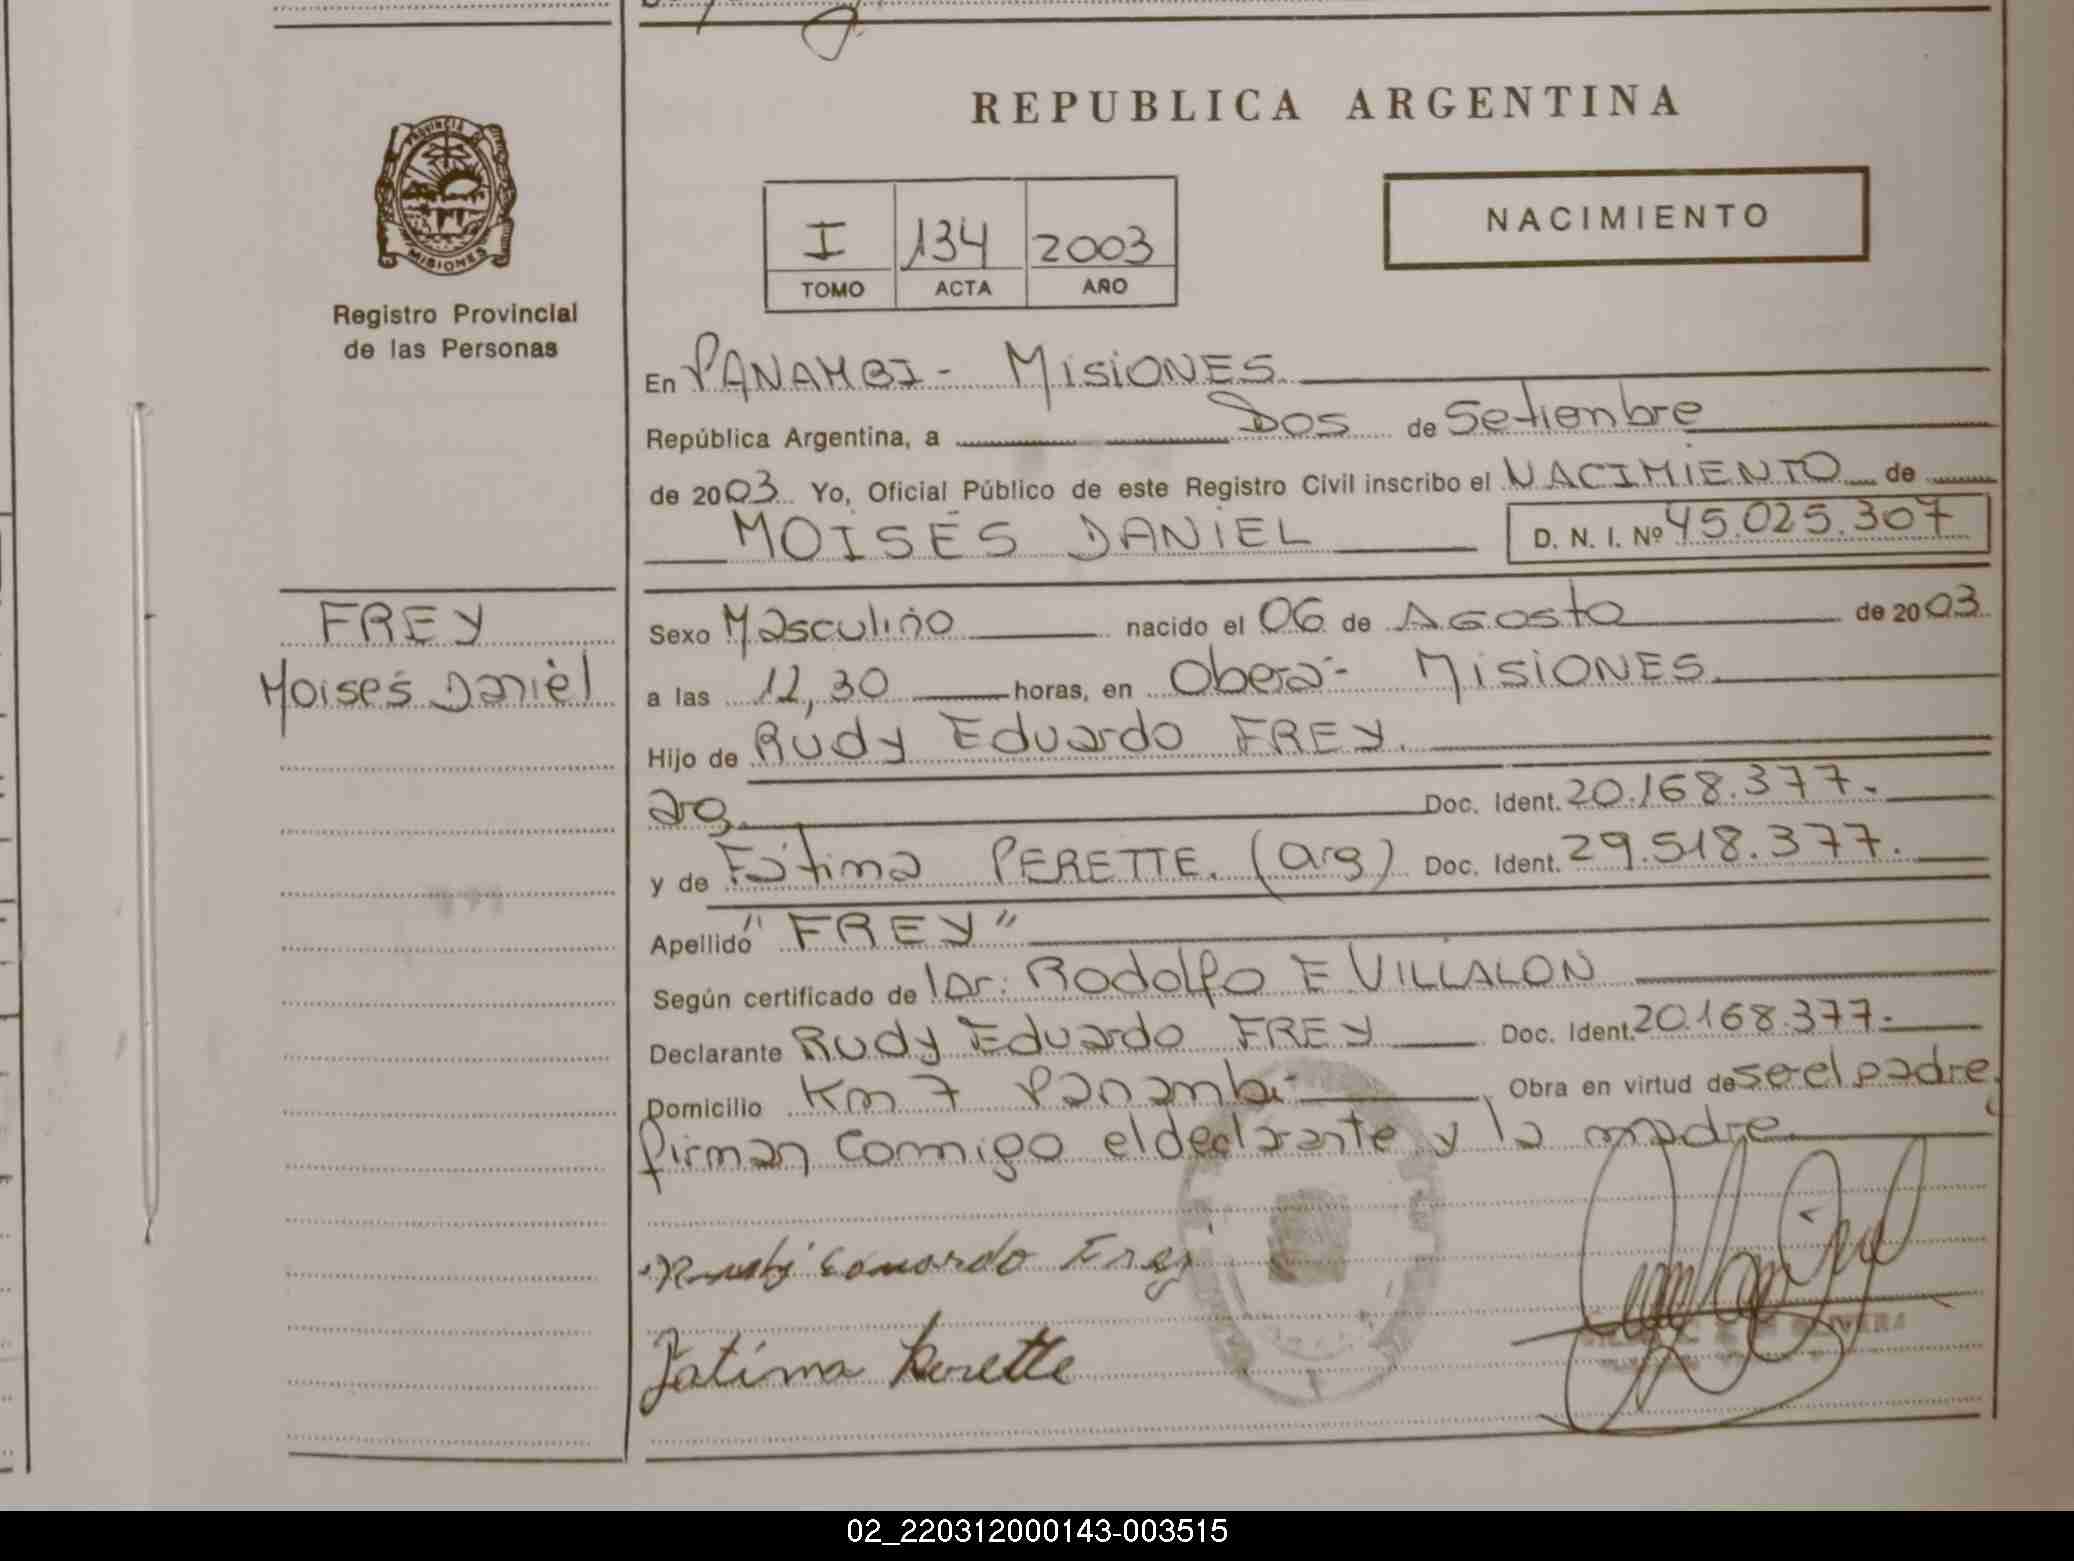 REPUBLICA ARGENTINA
PROVINCIA DE
MISIONES
Registro Provincial
de las Personas
NACIMIENTO
I 134 2003
TOMO ACTA AÑO
En PANAMBI - MISIONES
República Argentina, a Dos de Setiembre
de 2003 Yo, Oficial Público de este Registro Civil inscribo el NACIMIENTO de
MOISÉS DANIEL D. N. I. Nº 45.025.307
FREY
Moisés Daniel
Sexo Masculino nacido el 06 de Agosto de 2003
a las 12,30 horas, en Obera - MISIONES
Hijo de Rudy Eduardo FREY.
arg. Doc. Ident. 20.168.377.
y de Fátima PERETTE. (arg) Doc. Ident. 29.518.377.
Apellido "FREY"
Según certificado de Dr. Rodolfo E VILLALON
Declarante Rudy Eduardo FREY Doc. Ident. 20.168.377.
Domicilio Km 7 Panambi Obra en virtud de ser el padre,
firman conmigo el declarante y la madre
Eduardo Frey
Fatima Perette
OLIVERA
02_220312000143-003515